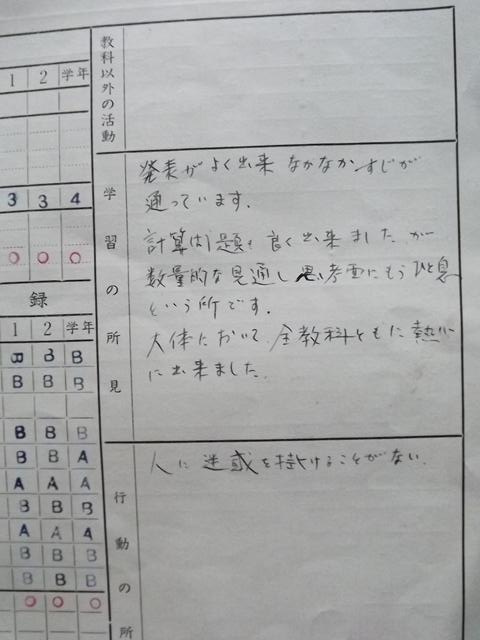 教科以外の活動
1 2 学年
3 3 4
○ ○ ○
録
1 2 学年
B B B
B B B
B B B
B B A
A A A
B B B
A A A
B B B
B B B
○ ○ ○
学習の所見
発表がよく出来なかなかすじが
通っています.
計算は問題も良く出来ましたが
数量的な見通し 思考面にもうひと息
という所です.
大体において、全教科ともに熱心
に出来ました.
行動の所
人に迷惑を掛けることがない.